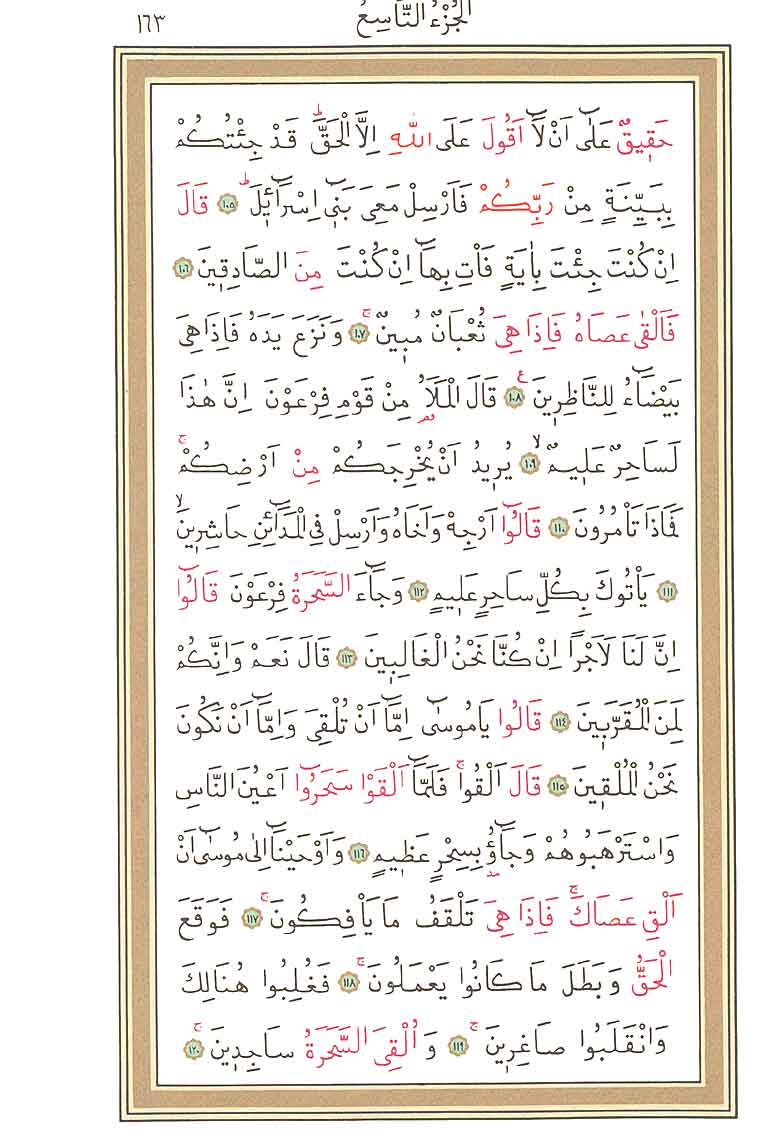 ١٦٣ اَلْجُزْءُ التَّاسِعُ
حَقٖيقٌ عَلٰٓى اَنْ لَٓا اَقُولَ عَلَى اللّٰهِ اِلَّا الْحَقَّؕ قَدْ جِئْتُكُمْ
بِبَيِّنَةٍ مِنْ رَبِّكُمْ فَاَرْسِلْ مَعِيَ بَنٖٓي اِسْرَٓائٖلَؕ ﴿١٠٥﴾ قَالَ
اِنْ كُنْتَ جِئْتَ بِاٰيَةٍ فَاْتِ بِهَٓا اِنْ كُنْتَ مِنَ الصَّادِقٖينَ ﴿١٠٦﴾
فَاَلْقٰى عَصَاهُ فَاِذَا هِيَ ثُعْبَانٌ مُبٖينٌۚ ﴿١٠٧﴾ وَنَزَعَ يَدَهُ فَاِذَا هِيَ
بَيْضَٓاءُ لِلنَّاظِرٖينَࣖ ﴿١٠٨﴾ قَالَ الْمَلَاُ مِنْ قَوْمِ فِرْعَوْنَ اِنَّ هٰذَا
لَسَاحِرٌ عَلٖيمٌۙ ﴿١٠٩﴾ يُرٖيدُ اَنْ يُخْرِجَكُمْ مِنْ اَرْضِكُمْۚ
فَمَاذَا تَاْمُرُونَ ﴿١١٠﴾ قَالُٓوا اَرْجِهْ وَاَخَاهُ وَاَرْسِلْ فِي الْمَدَٓائِنِ حَاشِرٖينَۙ
﴿١١١﴾ يَاْتُوكَ بِكُلِّ سَاحِرٍ عَلٖيمٍ ﴿١١٢﴾ وَجَٓاءَ السَّحَرَةُ فِرْعَوْنَ قَالُٓوا
اِنَّ لَنَا لَاَجْرًا اِنْ كُنَّا نَحْنُ الْغَالِبٖينَ ﴿١١٣﴾ قَالَ نَعَمْ وَاِنَّكُمْ
لَمِنَ الْمُقَرَّبٖينَ ﴿١١٤﴾ قَالُوا يَا مُوسٰٓى اِمَّٓا اَنْ تُلْقِيَ وَاِمَّٓا اَنْ نَكُونَ
نَحْنُ الْمُلْقٖينَ ﴿١١٥﴾ قَالَ اَلْقُواۚ فَلَمَّٓا اَلْقَوْا سَحَرُٓوا اَعْيُنَ النَّاسِ
وَاسْتَرْهَبُوهُمْ وَجَٓاؤُ بِسِحْرٍ عَظٖيمٍ ﴿١١٦﴾ وَاَوْحَيْنَٓا اِلٰى مُوسٰٓى اَنْ
اَلْقِ عَصَاكَۚ فَاِذَا هِيَ تَلْقَفُ مَا يَاْفِكُونَۚ ﴿١١٧﴾ فَوَقَعَ
الْحَقُّ وَبَطَلَ مَا كَانُوا يَعْمَلُونَۚ ﴿١١٨﴾ فَغُلِبُوا هُنَالِكَ
وَانْقَلَبُوا صَاغِرٖينَۚ ﴿١١٩﴾ وَاُلْقِيَ السَّحَرَةُ سَاجِدٖينَۚ ﴿١٢٠﴾